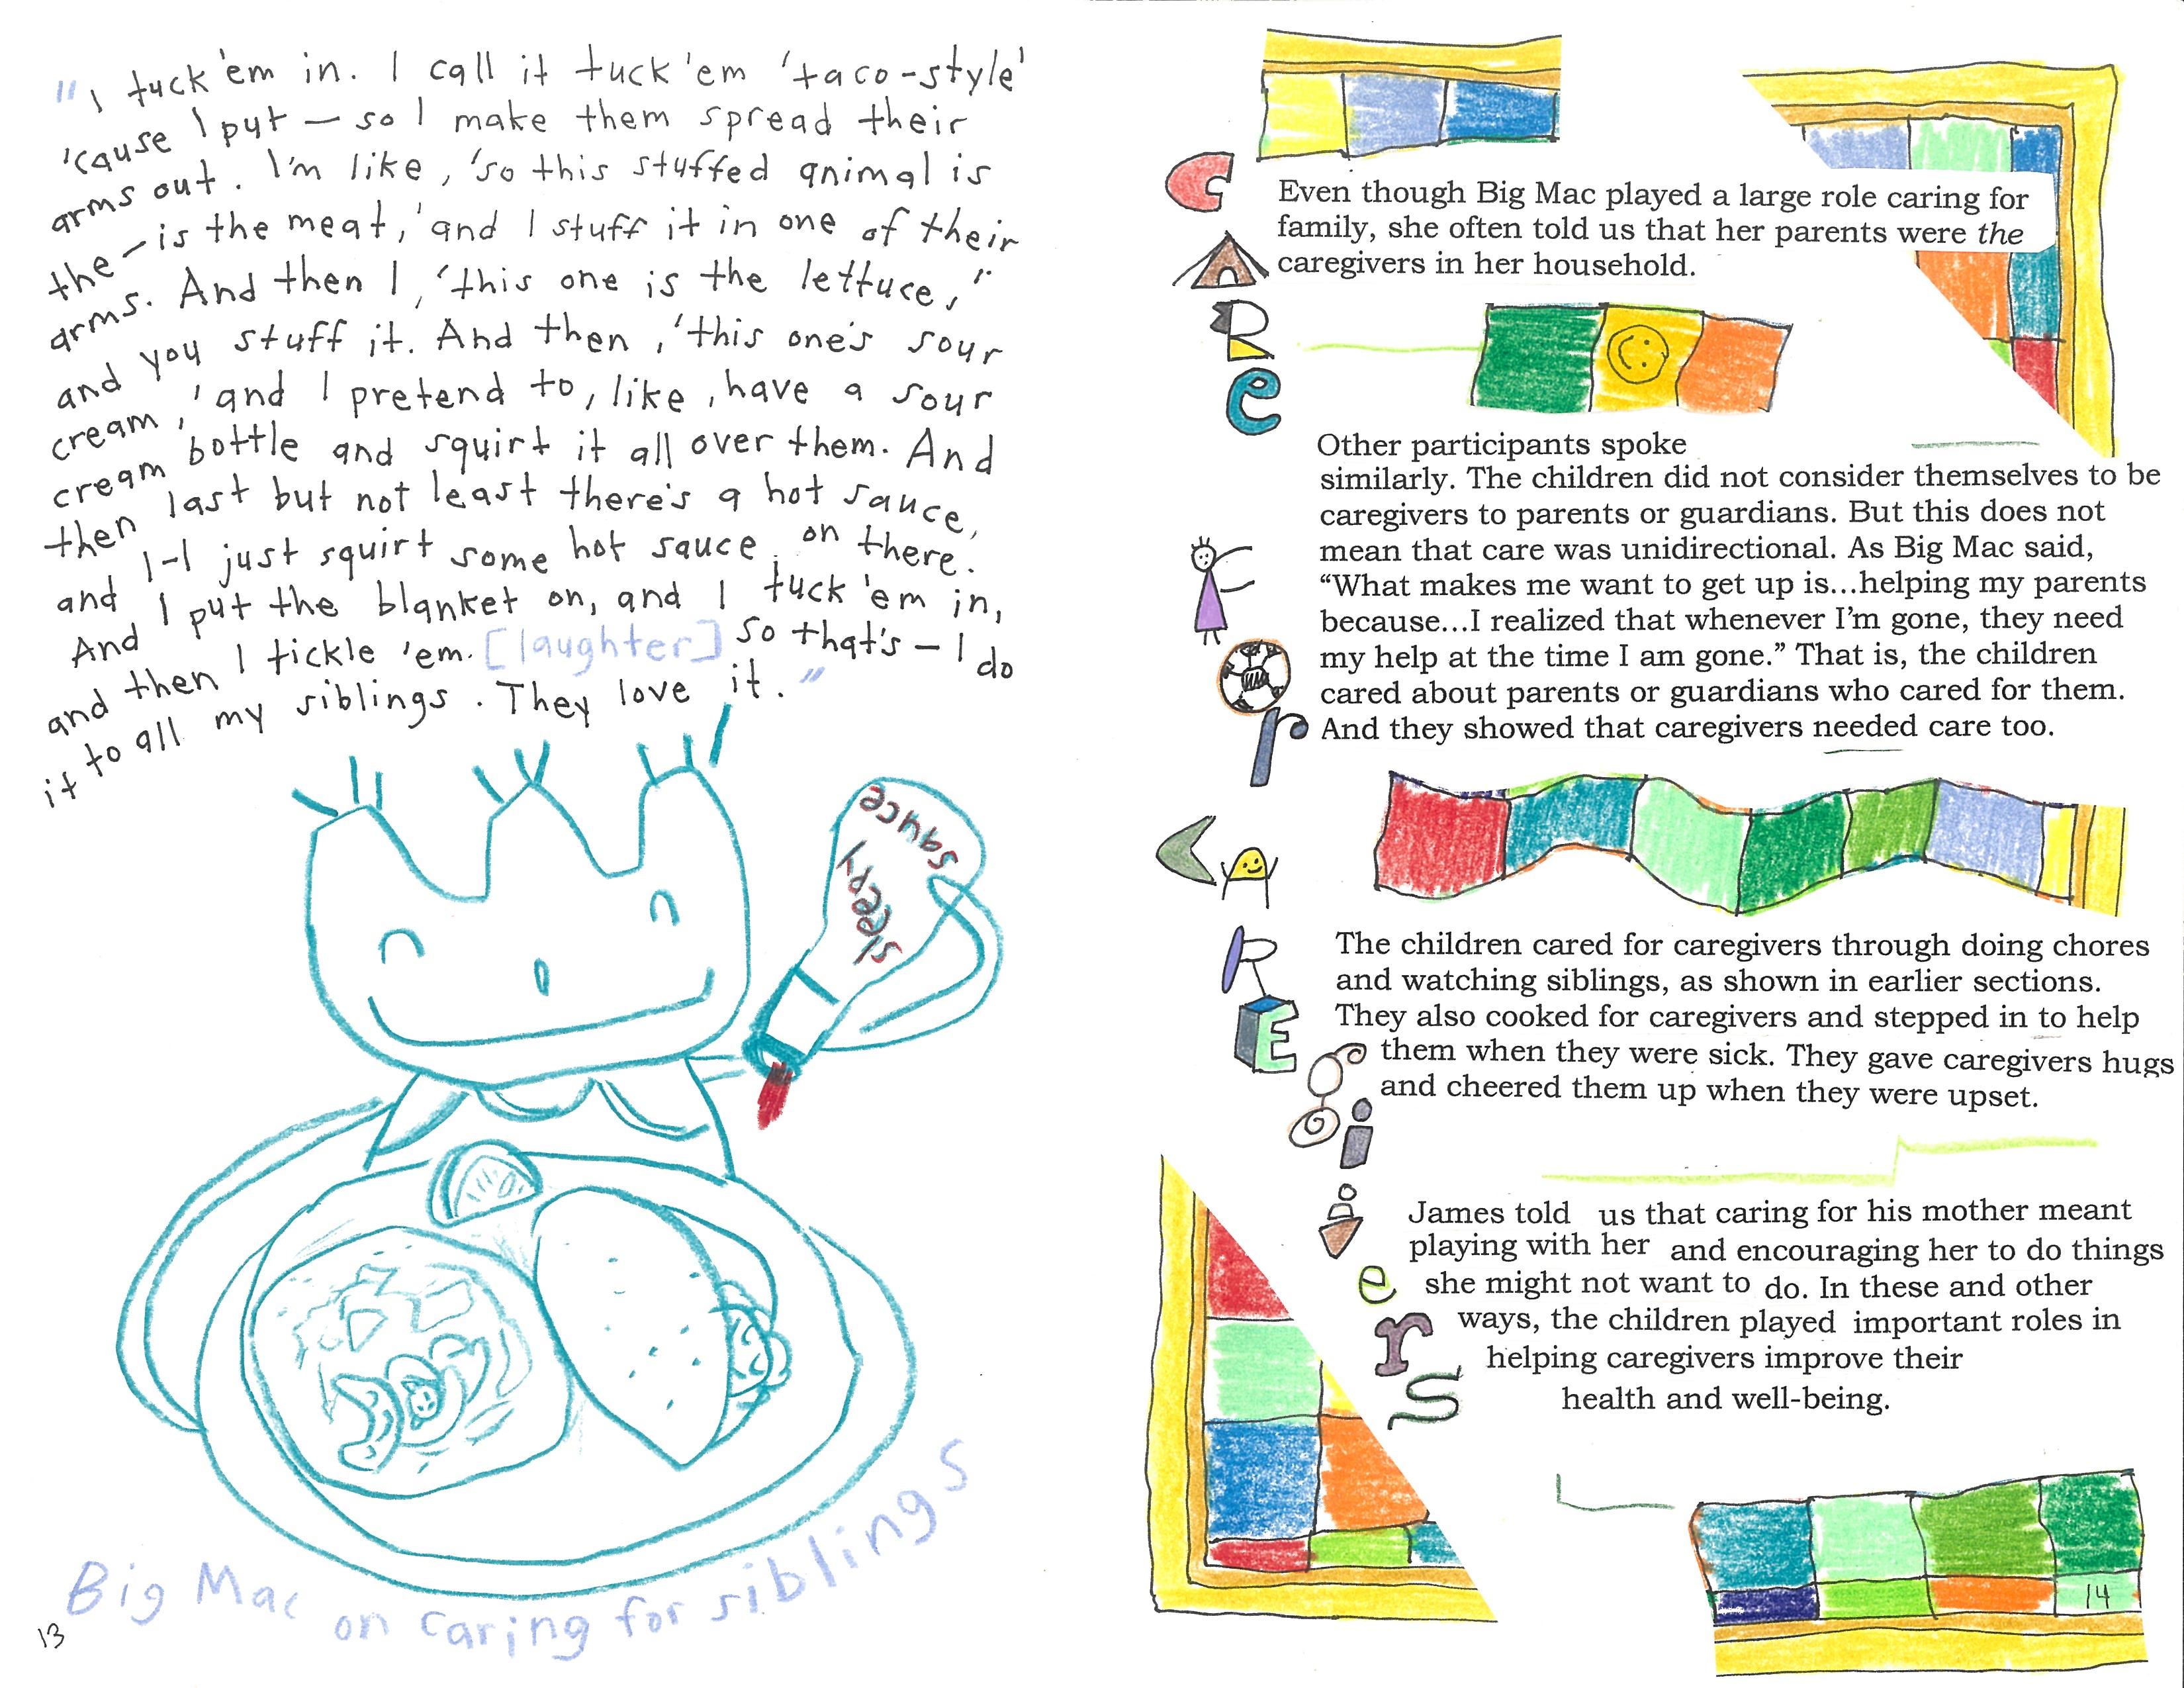 "I tuck 'em in. I call it tuck 'em 'taco-style'
'cause I put — so I make them spread their
arms out. I'm like, 'so this stuffed animal is
the — is the meat,' and I stuff it in one of their
arms. And then I, 'this one is the lettuce,'
and you stuff it. And then, 'this one's sour
cream,' and I pretend to, like, have a sour
cream bottle and squirt it all over them. And
then last but not least there's a hot sauce,
and I-I just squirt some hot sauce on there.
And I put the blanket on, and I tuck 'em in,
and then I tickle 'em. [laughter] so that's – I do
it to all my siblings. They love it."
sleepy
sauce
Big Mac on caring for siblings
13
CARe
For
CAREgivers
Even though Big Mac played a large role caring for
family, she often told us that her parents were the
caregivers in her household.
Other participants spoke
similarly. The children did not consider themselves to be
caregivers to parents or guardians. But this does not
mean that care was unidirectional. As Big Mac said,
“What makes me want to get up is…helping my parents
because…I realized that whenever I’m gone, they need
my help at the time I am gone.” That is, the children
cared about parents or guardians who cared for them.
And they showed that caregivers needed care too.
The children cared for caregivers through doing chores
and watching siblings, as shown in earlier sections.
They also cooked for caregivers and stepped in to help
them when they were sick. They gave caregivers hugs
and cheered them up when they were upset.
James told us that caring for his mother meant
playing with her and encouraging her to do things
she might not want to do. In these and other
ways, the children played important roles in
helping caregivers improve their
health and well-being.
14